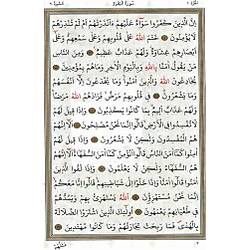 سورة البقرة
إِنَّ الَّذِينَ كَفَرُوا سَوَاءٌ عَلَيْهِمْ ءَأَنْذَرْتَهُمْ أَمْ لَمْ تُنْذِرْهُمْ
لَا يُؤْمِنُونَ خَتَمَ اللَّهُ عَلَى قُلُوبِهِمْ وَعَلَى سَمْعِهِمْ وَعَلَى
أَبْصَارِهِمْ غِشَاوَةٌ وَلَهُمْ عَذَابٌ عَظِيمٌ وَمِنَ النَّاسِ مَنْ
يَقُولُ ءَامَنَّا بِاللَّهِ وَبِالْيَوْمِ الْآخِرِ وَمَا هُمْ بِمُؤْمِنِينَ
يُخَادِعُونَ اللَّهَ وَالَّذِينَ ءَامَنُوا وَمَا يَخْدَعُونَ إِلَّا أَنْفُسَهُمْ
وَمَا يَشْعُرُونَ فِي قُلُوبِهِمْ مَرَضٌ فَزَادَهُمُ اللَّهُ مَرَضًا
وَلَهُمْ عَذَابٌ أَلِيمٌ بِمَا كَانُوا يَكْذِبُونَ وَإِذَا قِيلَ لَهُمْ
لَا تُفْسِدُوا فِي الْأَرْضِ قَالُوا إِنَّمَا نَحْنُ مُصْلِحُونَ
أَلَا إِنَّهُمْ هُمُ الْمُفْسِدُونَ وَلَكِنْ لَا يَشْعُرُونَ وَإِذَا قِيلَ
لَهُمْ ءَامِنُوا كَمَا ءَامَنَ النَّاسُ قَالُوا أَنُؤْمِنُ كَمَا ءَامَنَ السُّفَهَاءُ
أَلَا إِنَّهُمْ هُمُ السُّفَهَاءُ وَلَكِنْ لَا يَعْلَمُونَ وَإِذَا لَقُوا
الَّذِينَ ءَامَنُوا قَالُوا ءَامَنَّا وَإِذَا خَلَوْا إِلَى شَيَاطِينِهِمْ قَالُوا إِنَّا مَعَكُمْ
إِنَّمَا نَحْنُ مُسْتَهْزِءُونَ اللَّهُ يَسْتَهْزِئُ بِهِمْ وَيَمُدُّهُمْ
فِي طُغْيَانِهِمْ يَعْمَهُونَ أُولَئِكَ الَّذِينَ اشْتَرَوُا الضَّلَالَةَ
بِالْهُدَى فَمَا رَبِحَتْ تِجَارَتُهُمْ وَمَا كَانُوا مُهْتَدِينَ